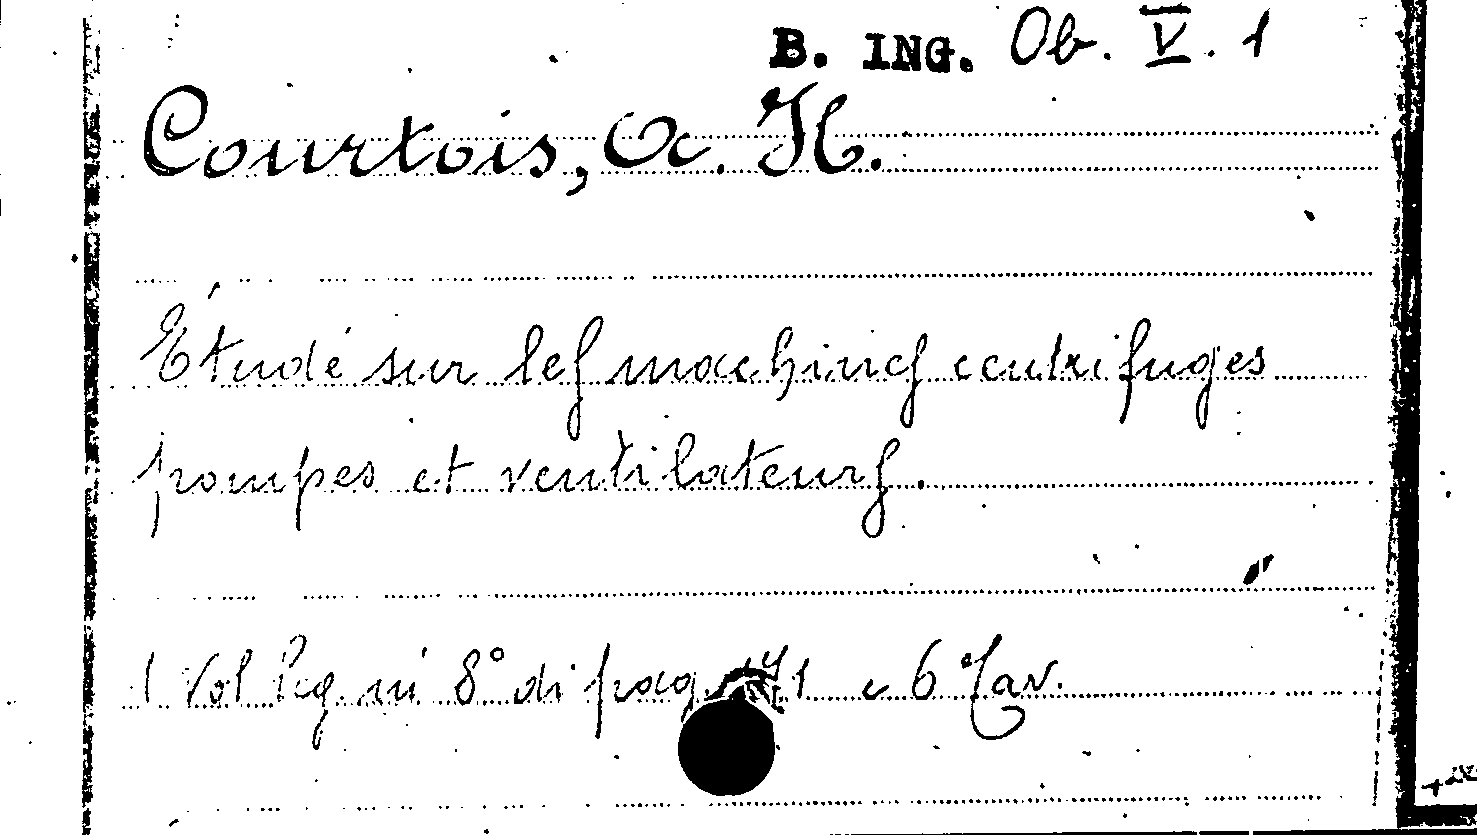 B. ING. Ob. V. 1
Courtois, A. H.
Étude sur les machines centrifuges
pompes et ventilateurs.
1 Vol leg. in 8° di pag. e 6 Tav.